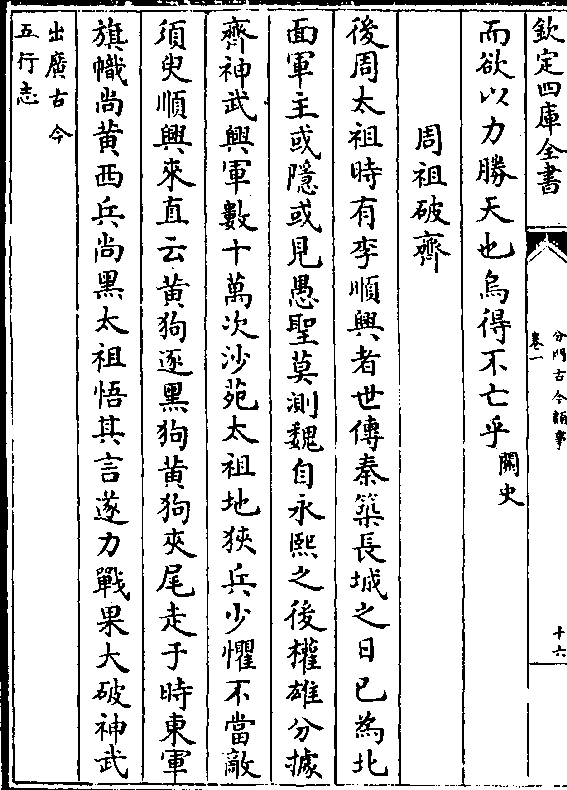 欽定四庫全書
分門古今類事
卷一
十六
而欲以力勝天也烏得不亡乎闕史
周祖破齊
後周太祖時有李順興者世傳秦築長城之日已為北
面軍主或隱或見愚聖莫測魏自永熙之後權雄分據
齊神武興軍數十萬次沙苑太祖地狹兵少懼不當敵
須臾順興來直云黄狗逐黑狗黄狗夾尾走于時東軍
旗幟尚黄西兵尚黑太祖悟其言遂力戰果大破神武
出廣古今
五行志